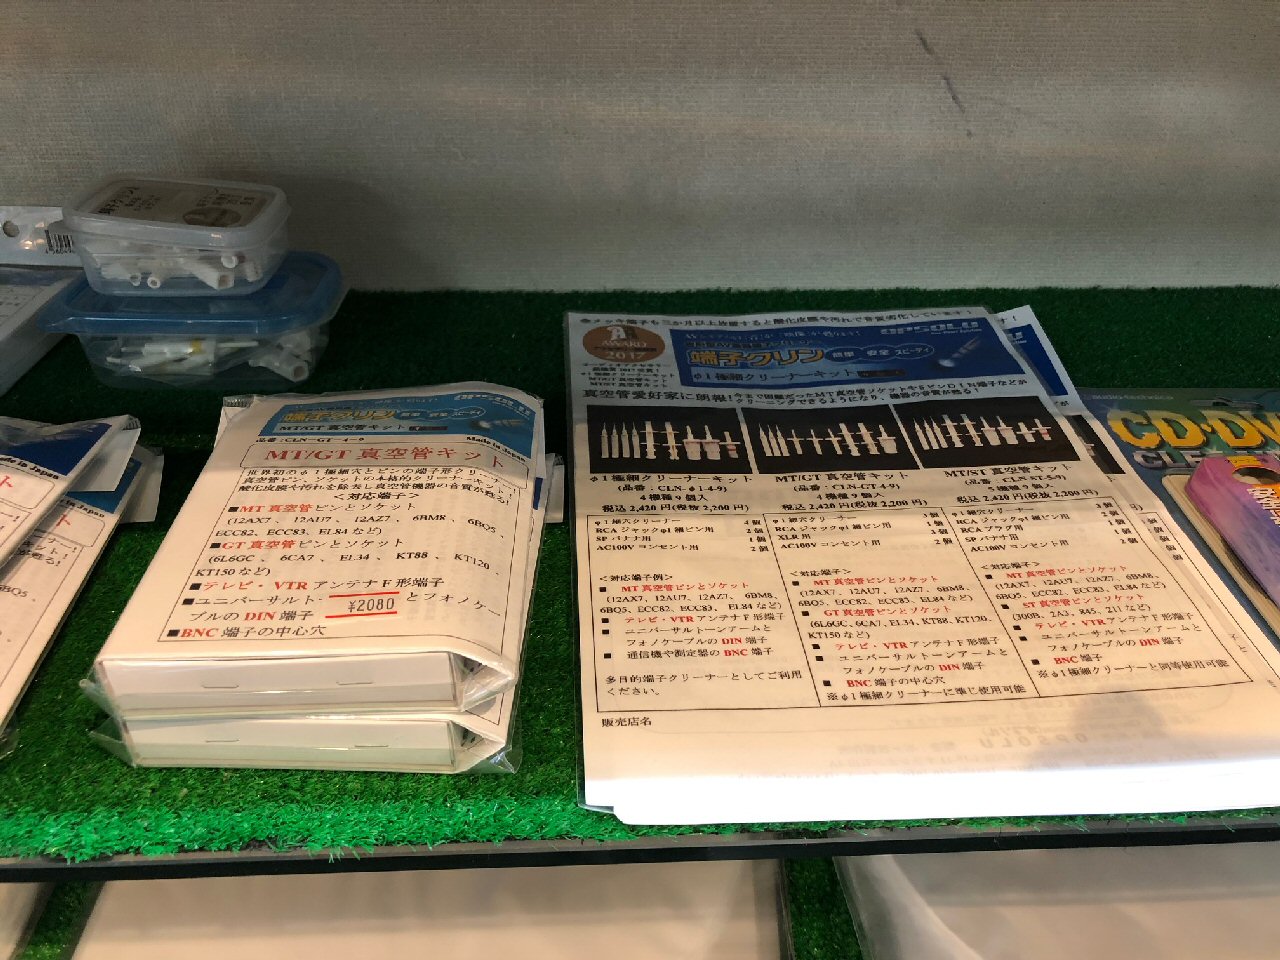 端子クリン 簡単 安全 スピーディ
MT/GT 真空管キット
品番：CLN-GT-4-9
Made in Japan
MT/GT 真空管キット
世界初のφ1極細穴とピンの端子形クリーナー！
真空管ピン、ソケットの本格的クリーナーキット
酸化皮膜や汚れを除去し真空管機器の音質が甦る！
＜対応端子＞
■MT 真空管ピンとソケット
(12AX7、12AU7、12AZ7、6BM8、6BQ5、
ECC82、ECC83、EL84 など)
■GT 真空管ピンとソケット
(6L6GC、6CA7、EL34、KT88、KT120、
KT150 など)
■テレビ・VTR アンテナ F 形端子
■ユニバーサルト
¥2080
とフォノケー
ブルの DIN 端子
■BNC 端子の中心穴
金メッキ端子も三か月以上放置すると酸化皮膜や汚れで音質劣化しています！
AWARD
2017
OPSOLU
端子クリン 簡単 安全 スピーディ
φ1極細クリーナーキット
真空管愛好家に朗報！
今まで困難だったMT真空管ソケットや5ピンDIN端子などが
クリーニングできるようになり、機器の音質が甦る！
φ1極細クリーナーキット
(品番：CLN-φ1-4-9)
4機種9個入
税込 2,420 円(税抜 2,200 円)
φ1細穴クリーナー 4個
RCA ジャックφ1細ピン用 2個
SP バナナ用 1個
AC100V コンセント用 2個
＜対応端子例＞
■ MT 真空管ピンとソケット
(12AX7、12AU7、12AZ7、6BM8、
6BQ5、ECC82、ECC83、EL84 など)
■ テレビ・VTR アンテナ F 形端子
■ ユニバーサルトーンアームと
フォノケーブルの DIN 端子
■ 通信機や測定器の BNC 端子
多目的端子クリーナーとしてご利用
ください。
MT/GT 真空管キット
(品番：CLN-GT-4-9)
4機種9個入
税込 2,420 円(税抜 2,200 円)
φ1細穴クリーナー
RCA ジャックφ1細ピン用
XLR 用
AC100V コンセント用 2個
＜対応端子＞
■ MT 真空管ピンとソケット
(12AX7、12AU7、12AZ7、6BM8、
6BQ5、ECC82、ECC83、EL84 など)
■ GT 真空管ピンとソケット
(6L6GC、6CA7、EL34、KT88、KT120、
KT150 など)
■ テレビ・VTR アンテナ F 形端子
■ ユニバーサルトーンアームと
フォノケーブルの DIN 端子
■ BNC 端子の中心穴
※φ1極細クリーナーに準じ使用可能
MT/ST 真空管キット
(品番：CLN-ST-5-9)
税込 2,420 円(税抜 2,200 円)
φ1細穴クリーナー
RCA ジャックφ1細ピン用
RCA プラグ用
SP バナナ用
AC100V コンセント用
＜対応端子＞
■ MT 真空管ピンとソケット
(12AX7、12AU7、12AZ7、6BM8、
6BQ5、ECC82、ECC83、EL84 など)
■ ST 真空管ピンとソケット
(300B、2A3、R45、211 など)
■ テレビ・VTR アンテナ F 形端子
■ ユニバーサルトーンアームと
フォノケーブルの DIN 端子
■ BNC 端子
※φ1極細クリーナーと同等使用可能
販売店名
audio-technica
CD・DV